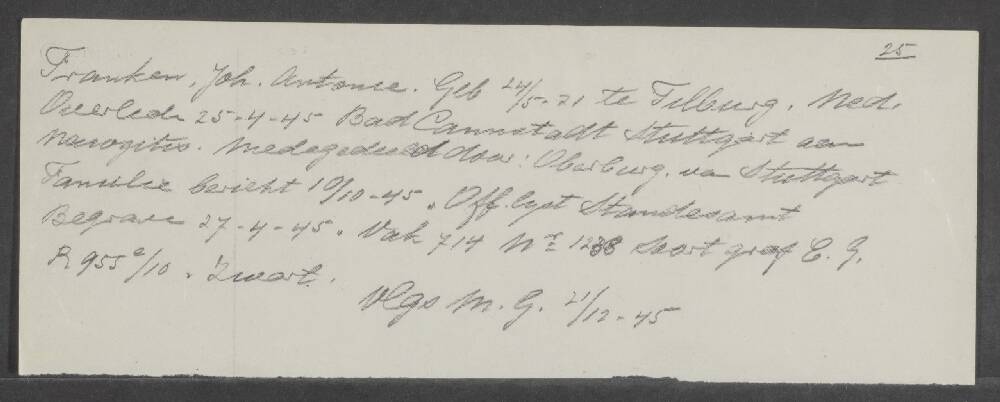 25
Franken, Joh. Antonie. Geb 24/5-21 te Tilburg. Ned.
Overleden 25-4-45 Bad Cannstadt Stuttgart aan
Medegedeeld door: Oberburg. van Stuttgart
Familie bericht 10/10-45. Off. lyst Standesamt
Begrave 27-4-45. Vak 714 Nr 1238 Soort graf E. G.
R 955 /10. Zwart.
Vlgs M. G. 21/12-45